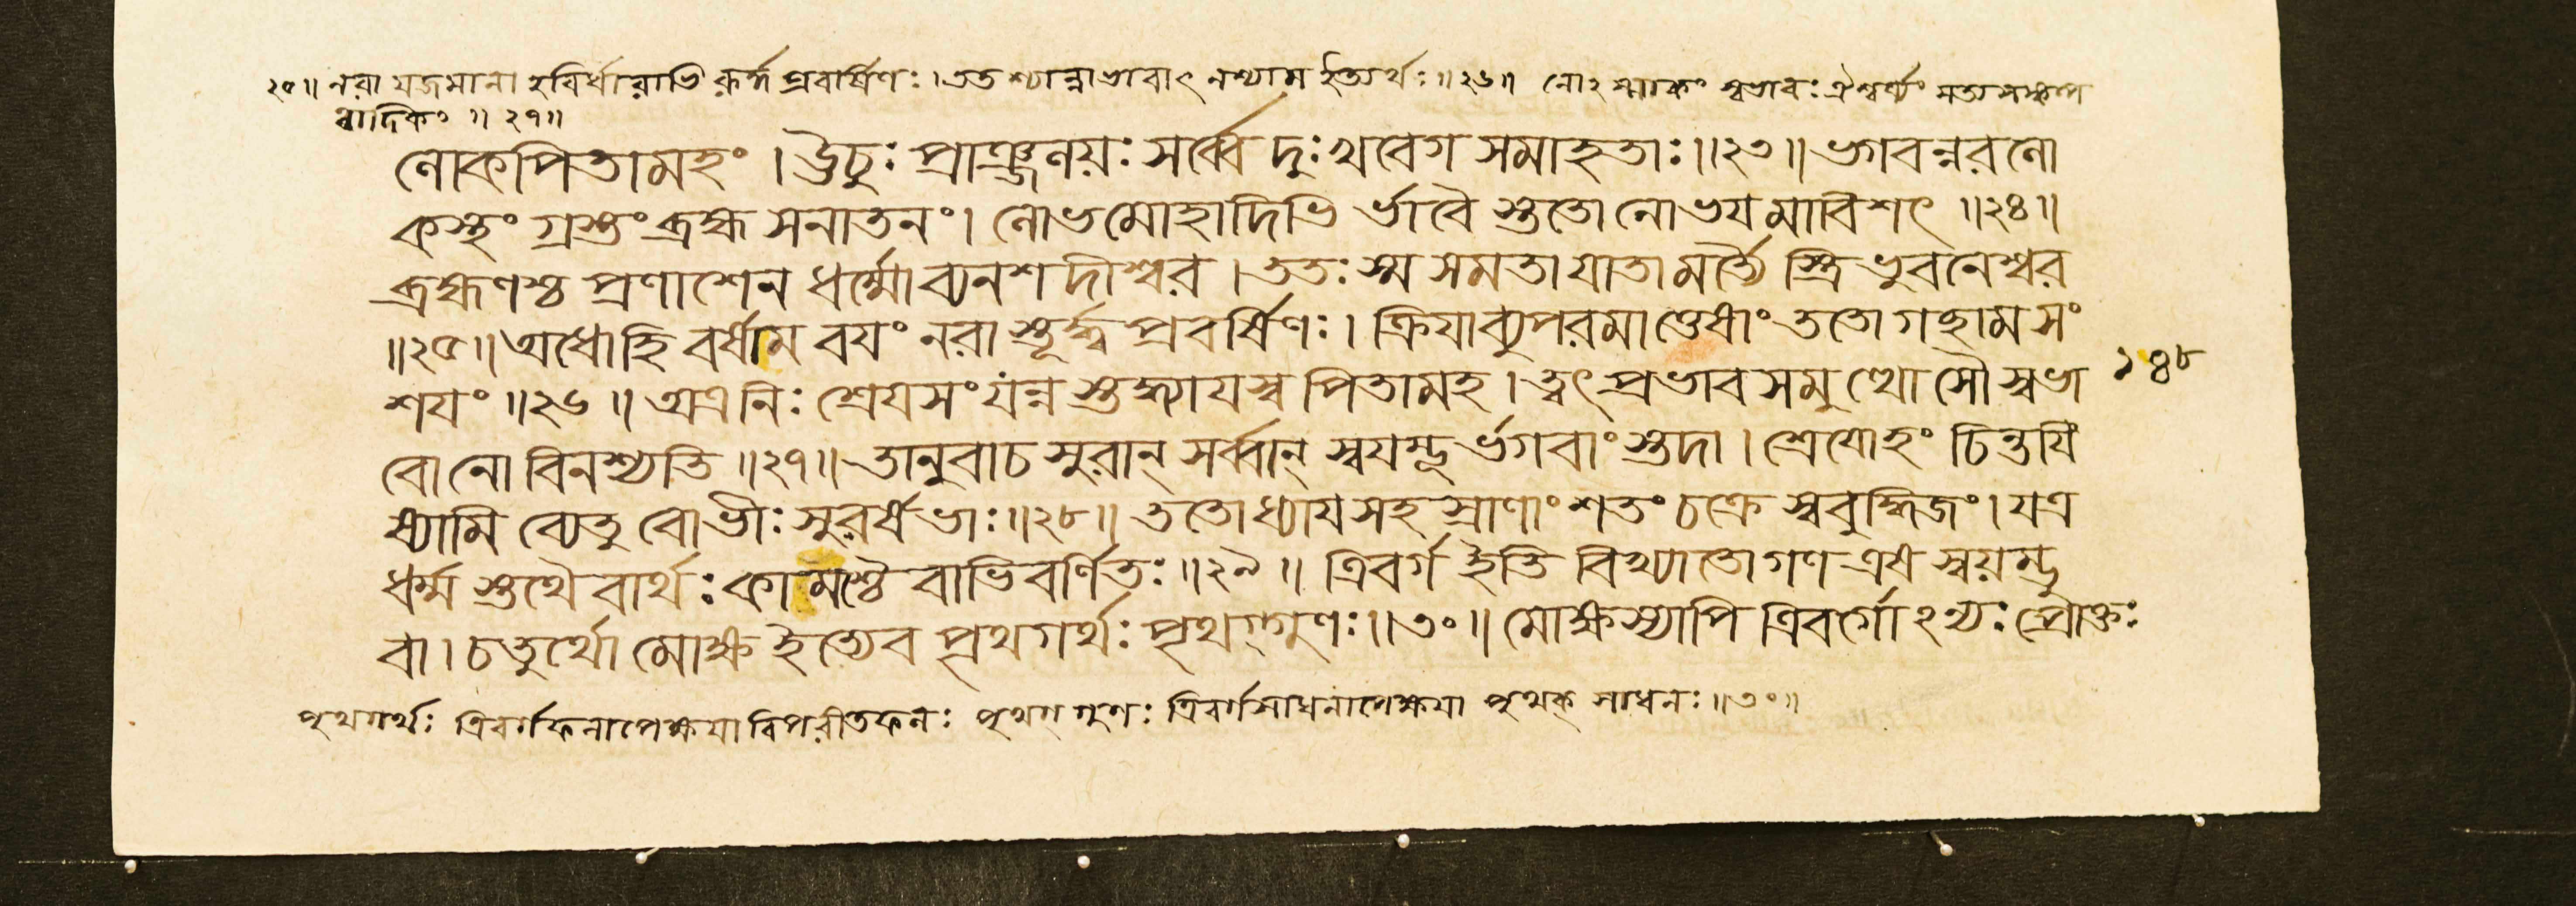 ২৫॥ নরা যজমানা হবির্ধারাভি রূর্দ্ধ প্রবার্ষিণঃ। ততশ্চান্নাভাবাৎ নশ্যাম ইত্যর্থঃ॥২৬॥ নোঽস্মাকং স্বভাবঃ ঐশ্বর্য্যং
ত্বাদিকং ॥২৭॥
লোকপিতামহং । ঊচুঃ প্রাঞ্জলয়ঃ সর্ব্বে দুঃখবেগ সমাহতাঃ॥২৩॥ ভগবন্নরলো
কস্থং গ্রস্তং ব্রহ্ম সনাতনং। লোভমোহাদিভি র্ভাবৈ স্ততো নোভযমাবিশৎ ॥২৪॥
ব্রহ্মণশ্চ প্রণাশেন ধর্ম্মোব্যনশদীশ্বর । ততঃ স্ম সমতা যাতা মর্ত্ত্যৈ স্ত্রিভুবনেশ্বর
॥২৫॥ অধোহি বর্ষাম বযং নরা স্তূর্দ্ধ্ব প্রবর্ষিণঃ। ক্রিযাব্যুপরমাত্তেষাং ততো গছাম সং
শযং ॥২৬॥ অত্র নিঃশ্রেযসং যন্ন স্তদ্ধ্যাযস্ব পিতামহ । ত্বৎপ্রভাব সমুত্থো সৌ স্বভা
১৪৮
বো নো বিনশ্যতি ॥২৭॥ তানুবাচ সুরান্ সর্ব্বান্ স্বযম্ভূ র্ভগবাংস্তদা । শ্রেযোহং চিন্তযি
ষ্যামি ব্যেতু বোভীঃ সুরর্ষভাঃ॥২৮॥ ততোধ্যায সহস্রাণাং শতং চক্রে স্ববুদ্ধিজং। যত্র
ধর্ম্ম স্তথৈবার্থঃ কামশ্চৈবাভিবর্ণিতঃ॥২৯॥ ত্রিবর্গ ইতি বিখ্যাতো গণ এষ স্বয়ম্ভু
বা। চতুর্থো মোক্ষ ইত্যেব পৃথগর্থঃ পৃথগ্গুণঃ॥৩০॥ মোক্ষস্যাপি ত্রিবর্গোঽন্যঃ প্রোক্তঃ
পৃথগর্থঃ ত্রিবর্গফলাপেক্ষযা বিপরীতফলঃ পৃথগ্গুণঃ ত্রিবর্গসাধনাপেক্ষযা পৃথক্ সাধনঃ॥৩০॥